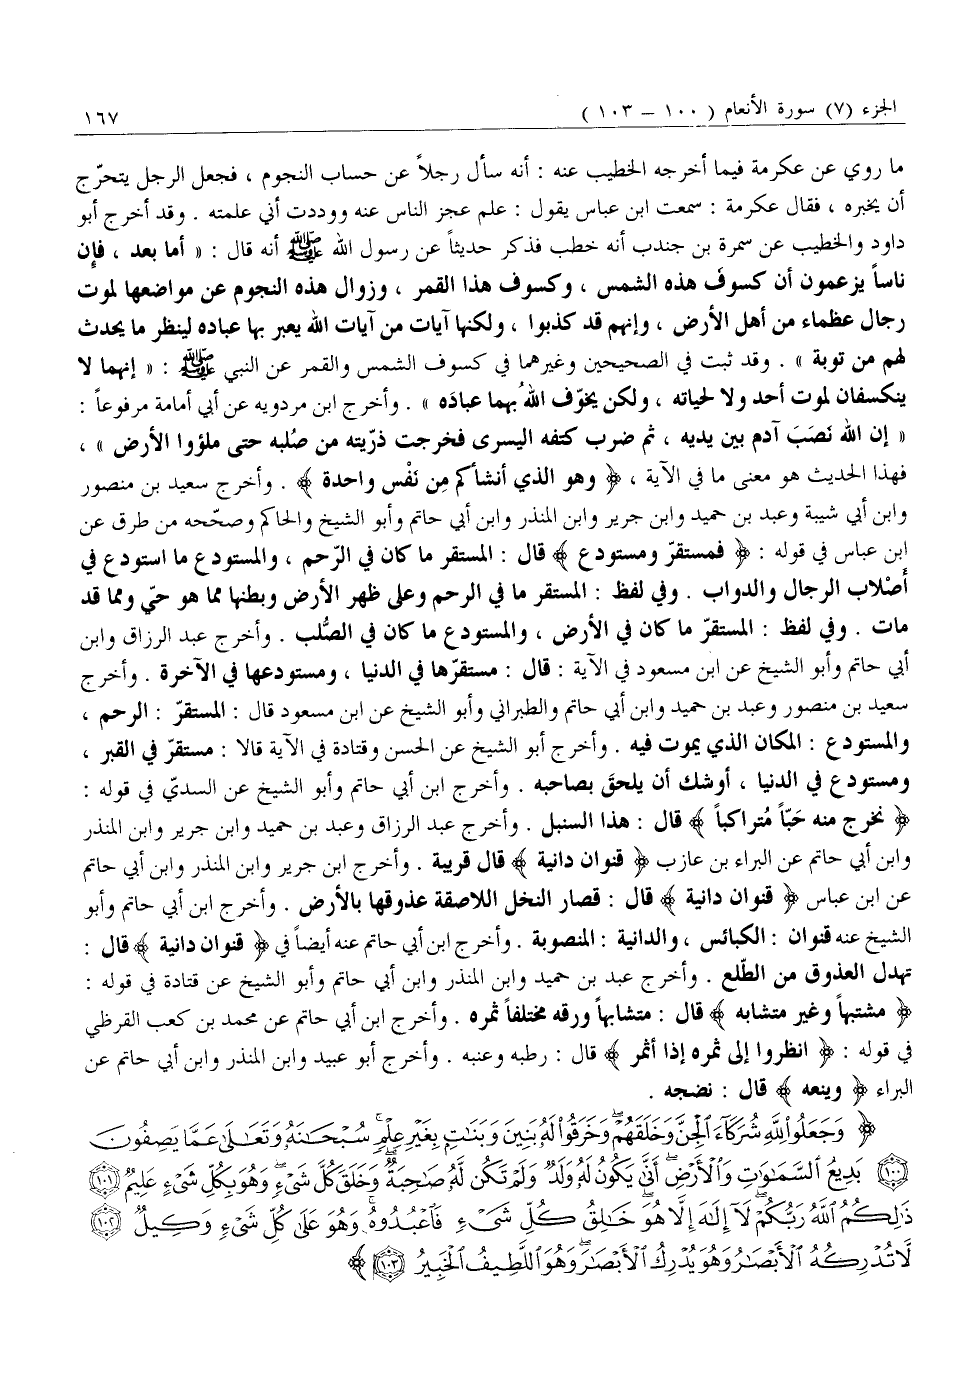 الجزء (٧) سورة الأنعام ( ١٠٠ – ١٠٣ ) ١٦٧
ما روي عن عكرمة فيما أخرجه الخطيب عنه : أنه سأل رجلاً عن حساب النجوم ، فجعل الرجل يتحرّج
أن يخبره ، فقال عكرمة : سمعت ابن عباس يقول : علم عجز الناس عنه ووددت أني علمته . وقد أخرج أبو
داود والخطيب عن سمرة بن جندب أنه خطب فذكر حديثاً عن رسول الله ﷺ أنه قال : « أما بعد ، فإن
ناساً يزعمون أن كسوفَ هذه الشمس ، وكسوف هذا القمر ، وزوال هذه النجوم عن مواضعها لموت
رجال عظماء من أهل الأرض ، وإنهم قد كذبوا ، ولكنها آيات من آيات الله يعبر بها عباده لينظر ما يحدث
لهم من توبة » . وقد ثبت في الصحيحين وغيرهما في كسوف الشمس والقمر عن النبي ﷺ : « إنهما لا
ينكسفان لموت أحد ولا لحياته ، ولكن يخوّف اللهُ بهما عبادَه » . وأخرج ابن مردويه عن أبي أمامة مرفوعاً :
« إن الله نَصَبَ آدم بين يديه ، ثم ضرب كتفه اليسرى فخرجت ذرّيته من صُلبه حتى ملؤوا الأرض » ،
فهذا الحديث هو معنى ما في الآية ، ﴿ وهو الذي أنشأكم مِن نَفْس واحدة ﴾ . وأخرج سعيد بن منصور
وابن أبي شيبة وعبد بن حميد وابن جرير وابن المنذر وابن أبي حاتم وأبو الشيخ والحاكم وصحّحه من طرق عن
ابن عباس في قوله : ﴿ فمستقرّ ومستودع ﴾ قال : المستقر ما كان في الرّحم ، والمستودع ما استودع في
أَصْلاب الرجال والدواب . وفي لفظ : المستقر ما في الرحم وعلى ظهر الأرض وبطنها مما هو حيّ ومما قد
مات . وفي لفظ : المستقرّ ما كان في الأرض ، والمستودع ما كان في الصُّلب . وأخرج عبد الرزاق وابن
أبي حاتم وأبو الشيخ عن ابن مسعود في الآية : قال : مستقرّها في الدنيا ، ومستودعها في الآخرة . وأخرج
سعيد بن منصور وعبد بن حميد وابن أبي حاتم والطبراني وأبو الشيخ عن ابن مسعود قال : المستقرّ : الرحم ،
والمستودع : المكان الذي يموت فيه . وأخرج أبو الشيخ عن الحسن وقتادة في الآية قالا : مستقرّ في القبر ،
ومستودع في الدنيا ، أوشك أن يلحقَ بصاحبه . وأخرج ابن أبي حاتم وأبو الشيخ عن السديّ في قوله :
﴿ نخرج منه حَبّاً مُتراكباً ﴾ قال : هذا السنبل . وأخرج عبد الرزاق وعبد بن حميد وابن جرير وابن المنذر
وابن أبي حاتم عن البراء بن عازب ﴿ قنوان دانية ﴾ قال قريبة . وأخرج ابن جرير وابن المنذر وابن أبي حاتم
عن ابن عباس ﴿ قنوان دانية ﴾ قال : قصار النخل اللاصقة عذوقها بالأرض . وأخرج ابن أبي حاتم وأبو
الشيخ عنه قنوان : الكبائس ، والدانية : المنصوبة . وأخرج ابن أبي حاتم عنه أيضاً في ﴿ قنوان دانية ﴾ قال :
تهدل العذوق من الطّلع . وأخرج عبد بن حميد وابن المنذر وابن أبي حاتم وأبو الشيخ عن قتادة في قوله :
﴿ مشتبهاً وغير متشابه ﴾ قال : متشابهاً ورقه مختلفاً ثمره . وأخرج ابن أبي حاتم عن محمد بن كعب القرظي
في قوله : ﴿ انظروا إلى ثمره إذا أثمر ﴾ قال : رطبه وعنبه . وأخرج أبو عبيد وابن المنذر وابن أبي حاتم عن
البراء ﴿ وينعه ﴾ قال : نضجه .
﴿ وَجَعَلُوا۟ لِلَّهِ شُرَكَآءَ ٱلْجِنَّ وَخَلَقَهُمْ ۖ وَخَرَقُوا۟ لَهُۥ بَنِينَ وَبَنَـٰتٍۭ بِغَيْرِ عِلْمٍ ۚ سُبْحَـٰنَهُۥ وَتَعَـٰلَىٰ عَمَّا يَصِفُونَ
﴿١٠٠﴾ بَدِيعُ ٱلسَّمَـٰوَٰتِ وَٱلْأَرْضِ ۖ أَنَّىٰ يَكُونُ لَهُۥ وَلَدٌ وَلَمْ تَكُن لَّهُۥ صَـٰحِبَةٌ ۖ وَخَلَقَ كُلَّ شَىْءٍ ۖ وَهُوَ بِكُلِّ شَىْءٍ عَلِيمٌ ﴿١٠١﴾
ذَٰلِكُمُ ٱللَّهُ رَبُّكُمْ ۖ لَآ إِلَـٰهَ إِلَّا هُوَ ۖ خَـٰلِقُ كُلِّ شَىْءٍ فَٱعْبُدُوهُ ۚ وَهُوَ عَلَىٰ كُلِّ شَىْءٍ وَكِيلٌ ﴿١٠٢﴾
لَّا تُدْرِكُهُ ٱلْأَبْصَـٰرُ وَهُوَ يُدْرِكُ ٱلْأَبْصَـٰرَ ۖ وَهُوَ ٱللَّطِيفُ ٱلْخَبِيرُ ﴿١٠٣﴾ ﴾